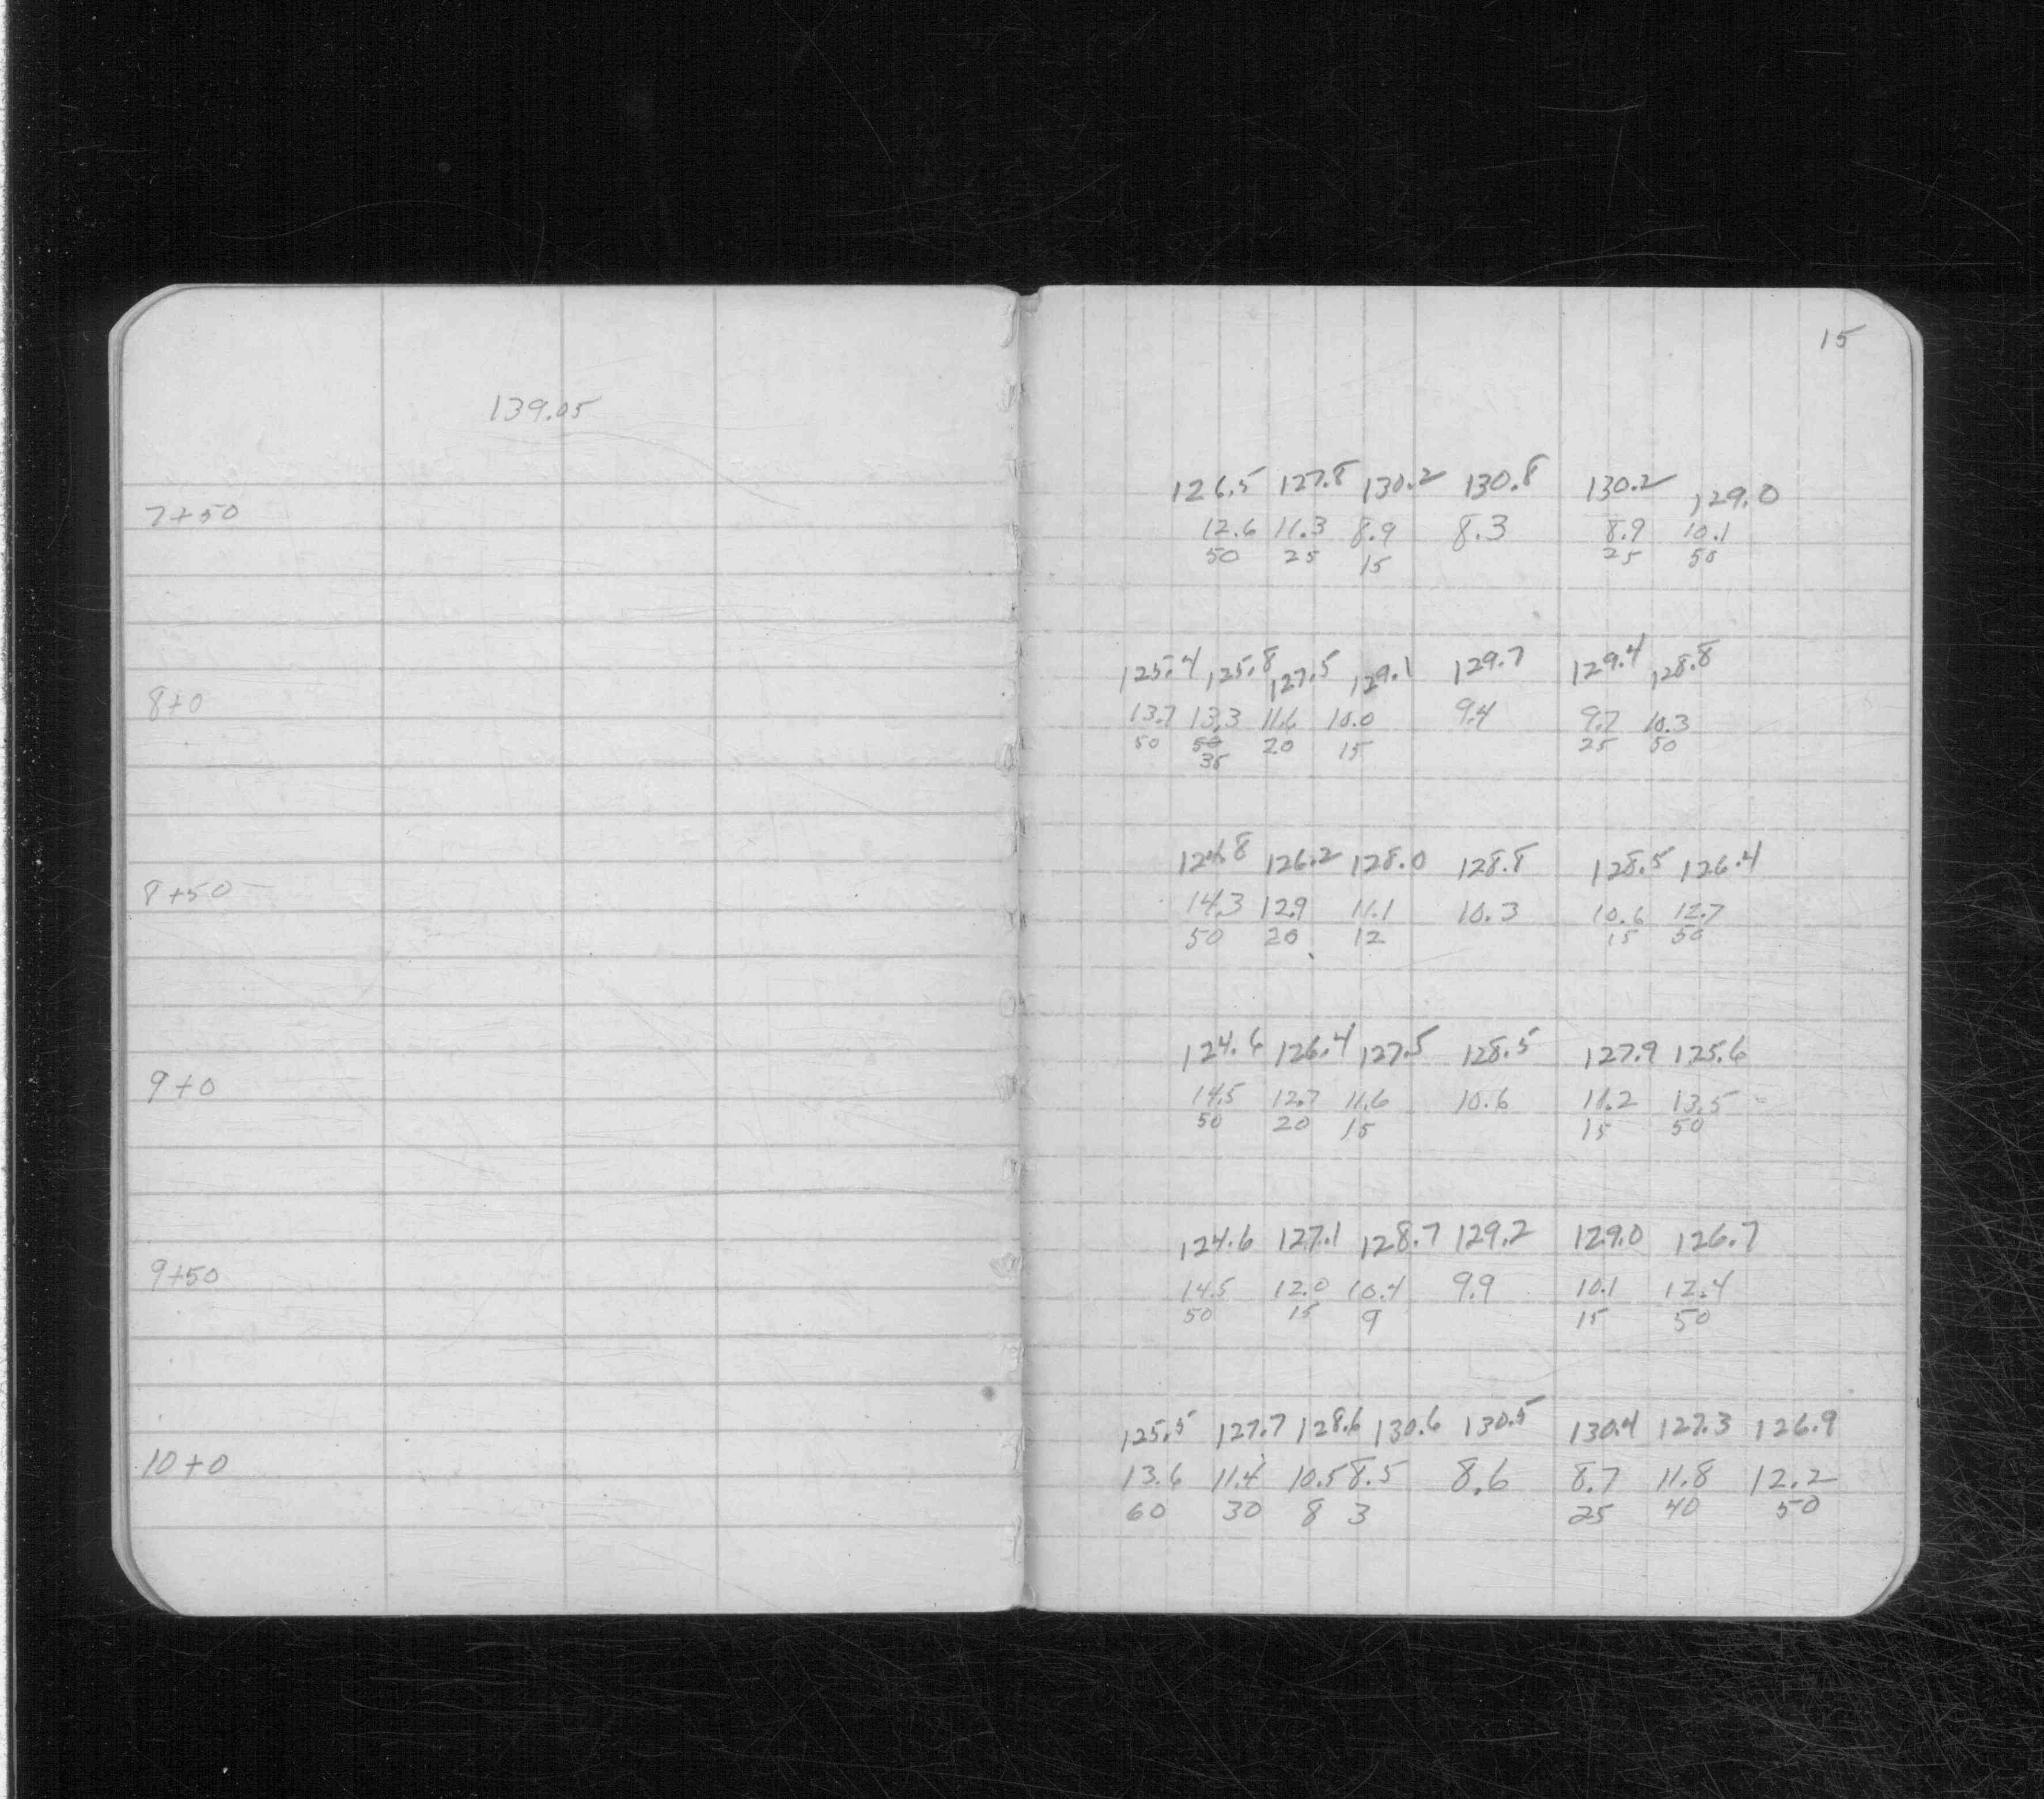 15
139.05
126.5 127.8 130.2 130.8 130.2 129.0
7+50 12.6 11.3 8.9 8.3 8.9 10.1
50 25 15 25 50
125.4 125.8 127.5 129.1 129.7 129.4 128.8
8+0 13.7 13.3 11.6 10.0 9.4 9.7 10.3
50 50 20 15 25 50
35
124.8 126.2 128.0 128.8 128.5 126.4
8+50 14.3 12.9 11.1 10.3 10.6 12.7
50 20 12 15 50
124.6 126.4 127.5 128.5 127.9 125.6
9+0 14.5 12.7 11.6 10.6 11.2 13.5
50 20 15 15 50
124.6 127.1 128.7 129.2 129.0 126.7
9+50 14.5 12.0 10.4 9.9 10.1 12.4
50 15 9 15 50
125.5 127.7 128.6 130.6 130.5 130.4 127.3 126.9
10+0 13.6 11.4 10.5 8.5 8.6 8.7 11.8 12.2
60 30 8 3 25 40 50